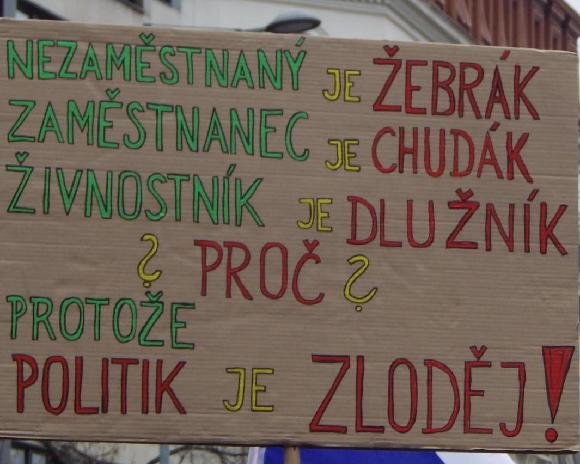 NEZAMĚSTNANÝ JE ŽEBRÁK
ZAMĚSTNANEC JE CHUDÁK
ŽIVNOSTNÍK JE DLUŽNÍK
? PROČ ?
PROTOŽE
POLITIK JE ZLODĚJ!